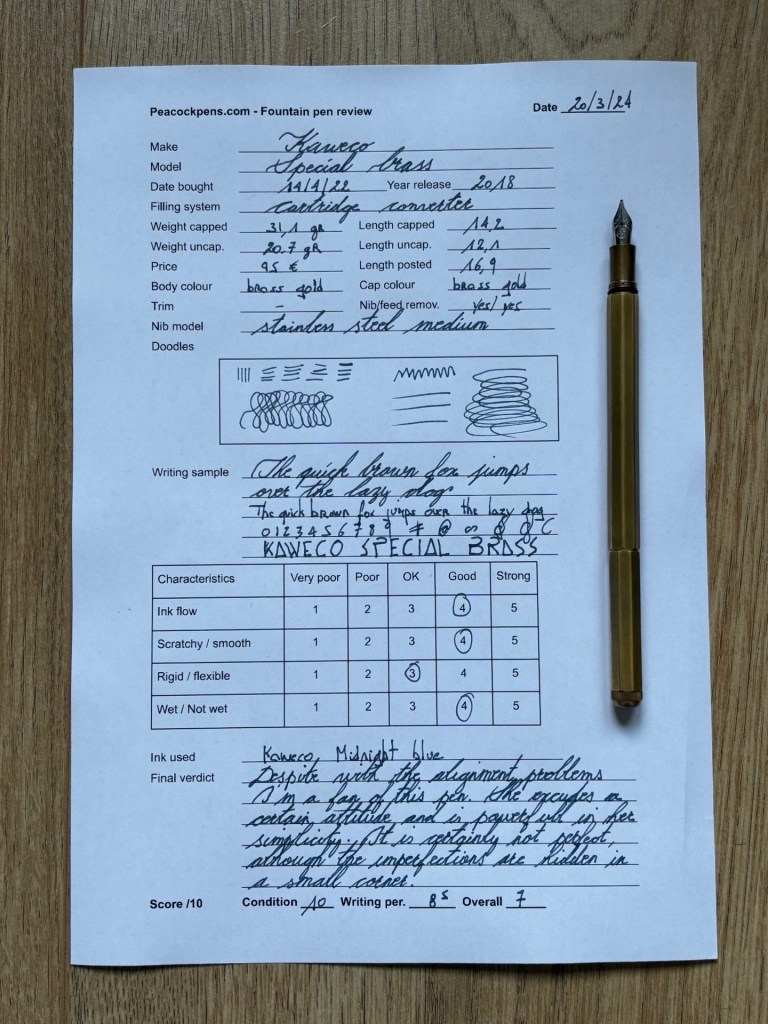 Peacockpens.com - Fountain pen review Date 20/3/24
Make Kaweco
Model Special brass
Date bought 14/4/22 Year release 2018
Filling system cartridge converter
Weight capped 31,1 gR Length capped 14,2
Weight uncap. 20.7 gR Length uncap. 12,1
Price 95 € Length posted 16,9
Body colour brass gold Cap colour brass gold
Trim - Nib/feed remov. yes/yes
Nib model stainless steel medium
Doodles
Writing sample The quick brown fox jumps
over the lazy dog
The quick brown fox jumps over the lazy dog
0 1 2 3 4 5 6 7 8 9
KAWECO SPECIAL BRASS
Characteristics Very poor Poor OK Good Strong
Ink flow 1 2 3 4 5
Scratchy / smooth 1 2 3 4 5
Rigid / flexible 1 2 3 4 5
Wet / Not wet 1 2 3 4 5
Ink used Kaweco, Midnight blue
Final verdict Despite with the alignment problems
I'm a fan of this pen. She excudes a
certain attitude and is powerfull in her
simplicity. It is certainly not perfect,
although the imperfections are hidden in
a small corner.
Score /10 Condition 10 Writing per. 8 5 Overall 7